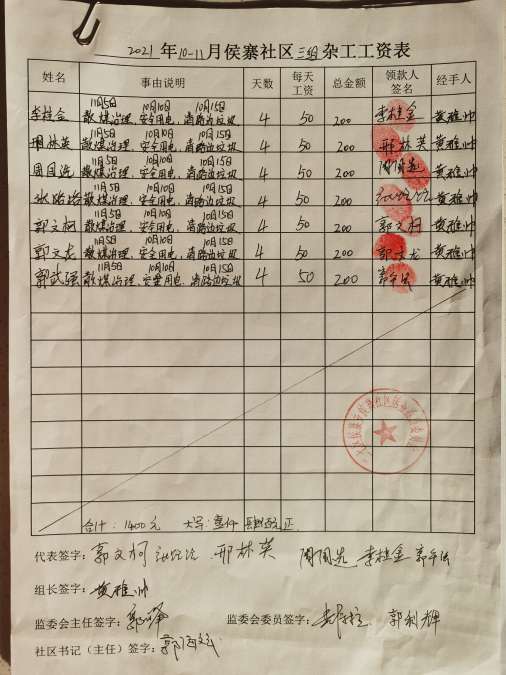 2021年10-11月侯寨社区三组杂工工资表
姓名 事由说明 天数 每天工资 总金额 领款人签名 经手人
11月5日 10月10日 10月15日
李桂金 散煤治理、安全用电、清路边垃圾 4 50 200 李桂金 黄雅帅
11月5日 10月10日 10月15日
邢林英 散煤治理、安全用电、清路边垃圾 4 50 200 邢林英 黄雅帅
11月5日 10月10日 10月15日
周国选 散煤治理、安全用电、清路边垃圾 4 50 200 周国选 黄雅帅
11月5日 10月10日 10月15日
散煤治理、安全用电、清路边垃圾 4 50 200 黄雅帅
11月5日 10月10日 10月15日
郭文柯 散煤治理、安全用电、清路边垃圾 4 50 200 郭文柯 黄雅帅
11月5日 10月10日 10月15日
郭文龙 散煤治理、安全用电、清路边垃圾 4 50 200 郭文龙 黄雅帅
11月5日 10月10日 10月15日
郭武强 散煤治理、安全用电、清路边垃圾 4 50 200 黄雅帅
合计：1400元 大写：壹仟肆佰元正
代表签字：郭文柯 邢林英 周国选 李桂金
组长签字：黄雅帅
监委会主任签字： 监委会委员签字： 郭利辉
社区书记（主任）签字：